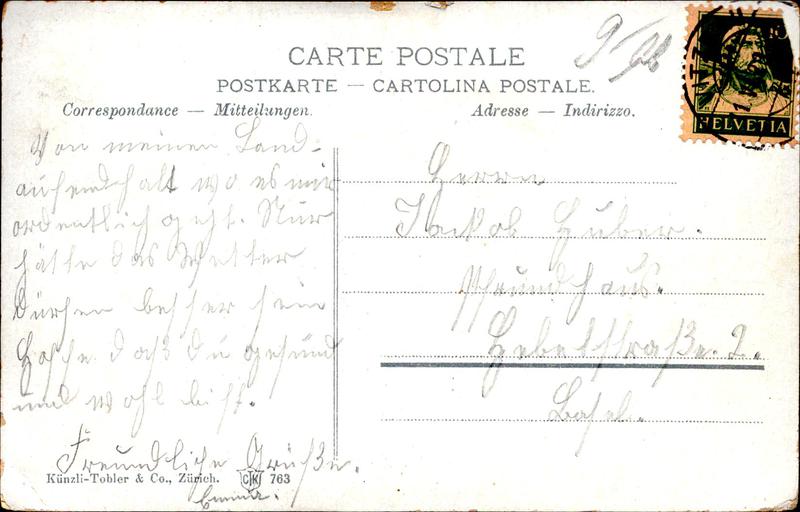 9/98
CARTE POSTALE
POSTKARTE — CARTOLINA POSTALE.
Correspondance — Mitteilungen.
Adresse — Indirizzo.
10
HELVETIA
Von meinen Land-
aufendhalt wo es mir
ordentlich geht. Nur
hätte das Wetter
dürfen besser sein
Hoffe daß du gesund
und wohl bist.
Freundliche Grüße.
Emma.
Herrn
Jackob Huber.
Pfrundhaus.
Hebelstraße. 2.
Basel.
Künzli-Tobler & Co., Zürich. CTK 763